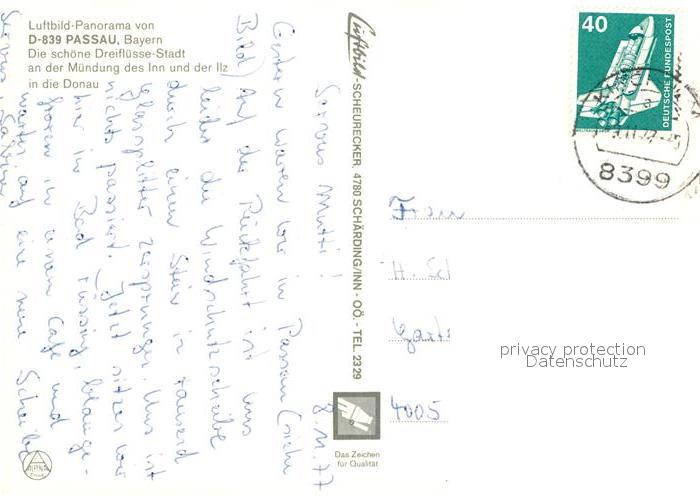 Luftbild-Panorama von
D-839 PASSAU, Bayern
Die schöne Dreiflüsse-Stadt
an der Mündung des Inn und der Ilz
in die Donau
8.11.77
Servus Mutti!
Gestern waren wir in Passau (siehe
Bild) Auf der Rückfahrt ist uns
leider die Windschutzscheibe
durch einen Stein in tausend
Glassplitter zersprungen. Uns ist
nichts passiert. Jetzt sitzen wir
hier in Bad Füssing,
froren in einem Cafe und
warten auf eine neue Scheibe
Servus, Sabine
Luftbild-SCHEURECKER 4780 SCHÄRDING/INN - OÖ. - TEL. 2329
Das Zeichen
für Qualität
40
DEUTSCHE BUNDESPOST
8399
Frau
H. Sch
Garte
4005
privacy protection
Datenschutz